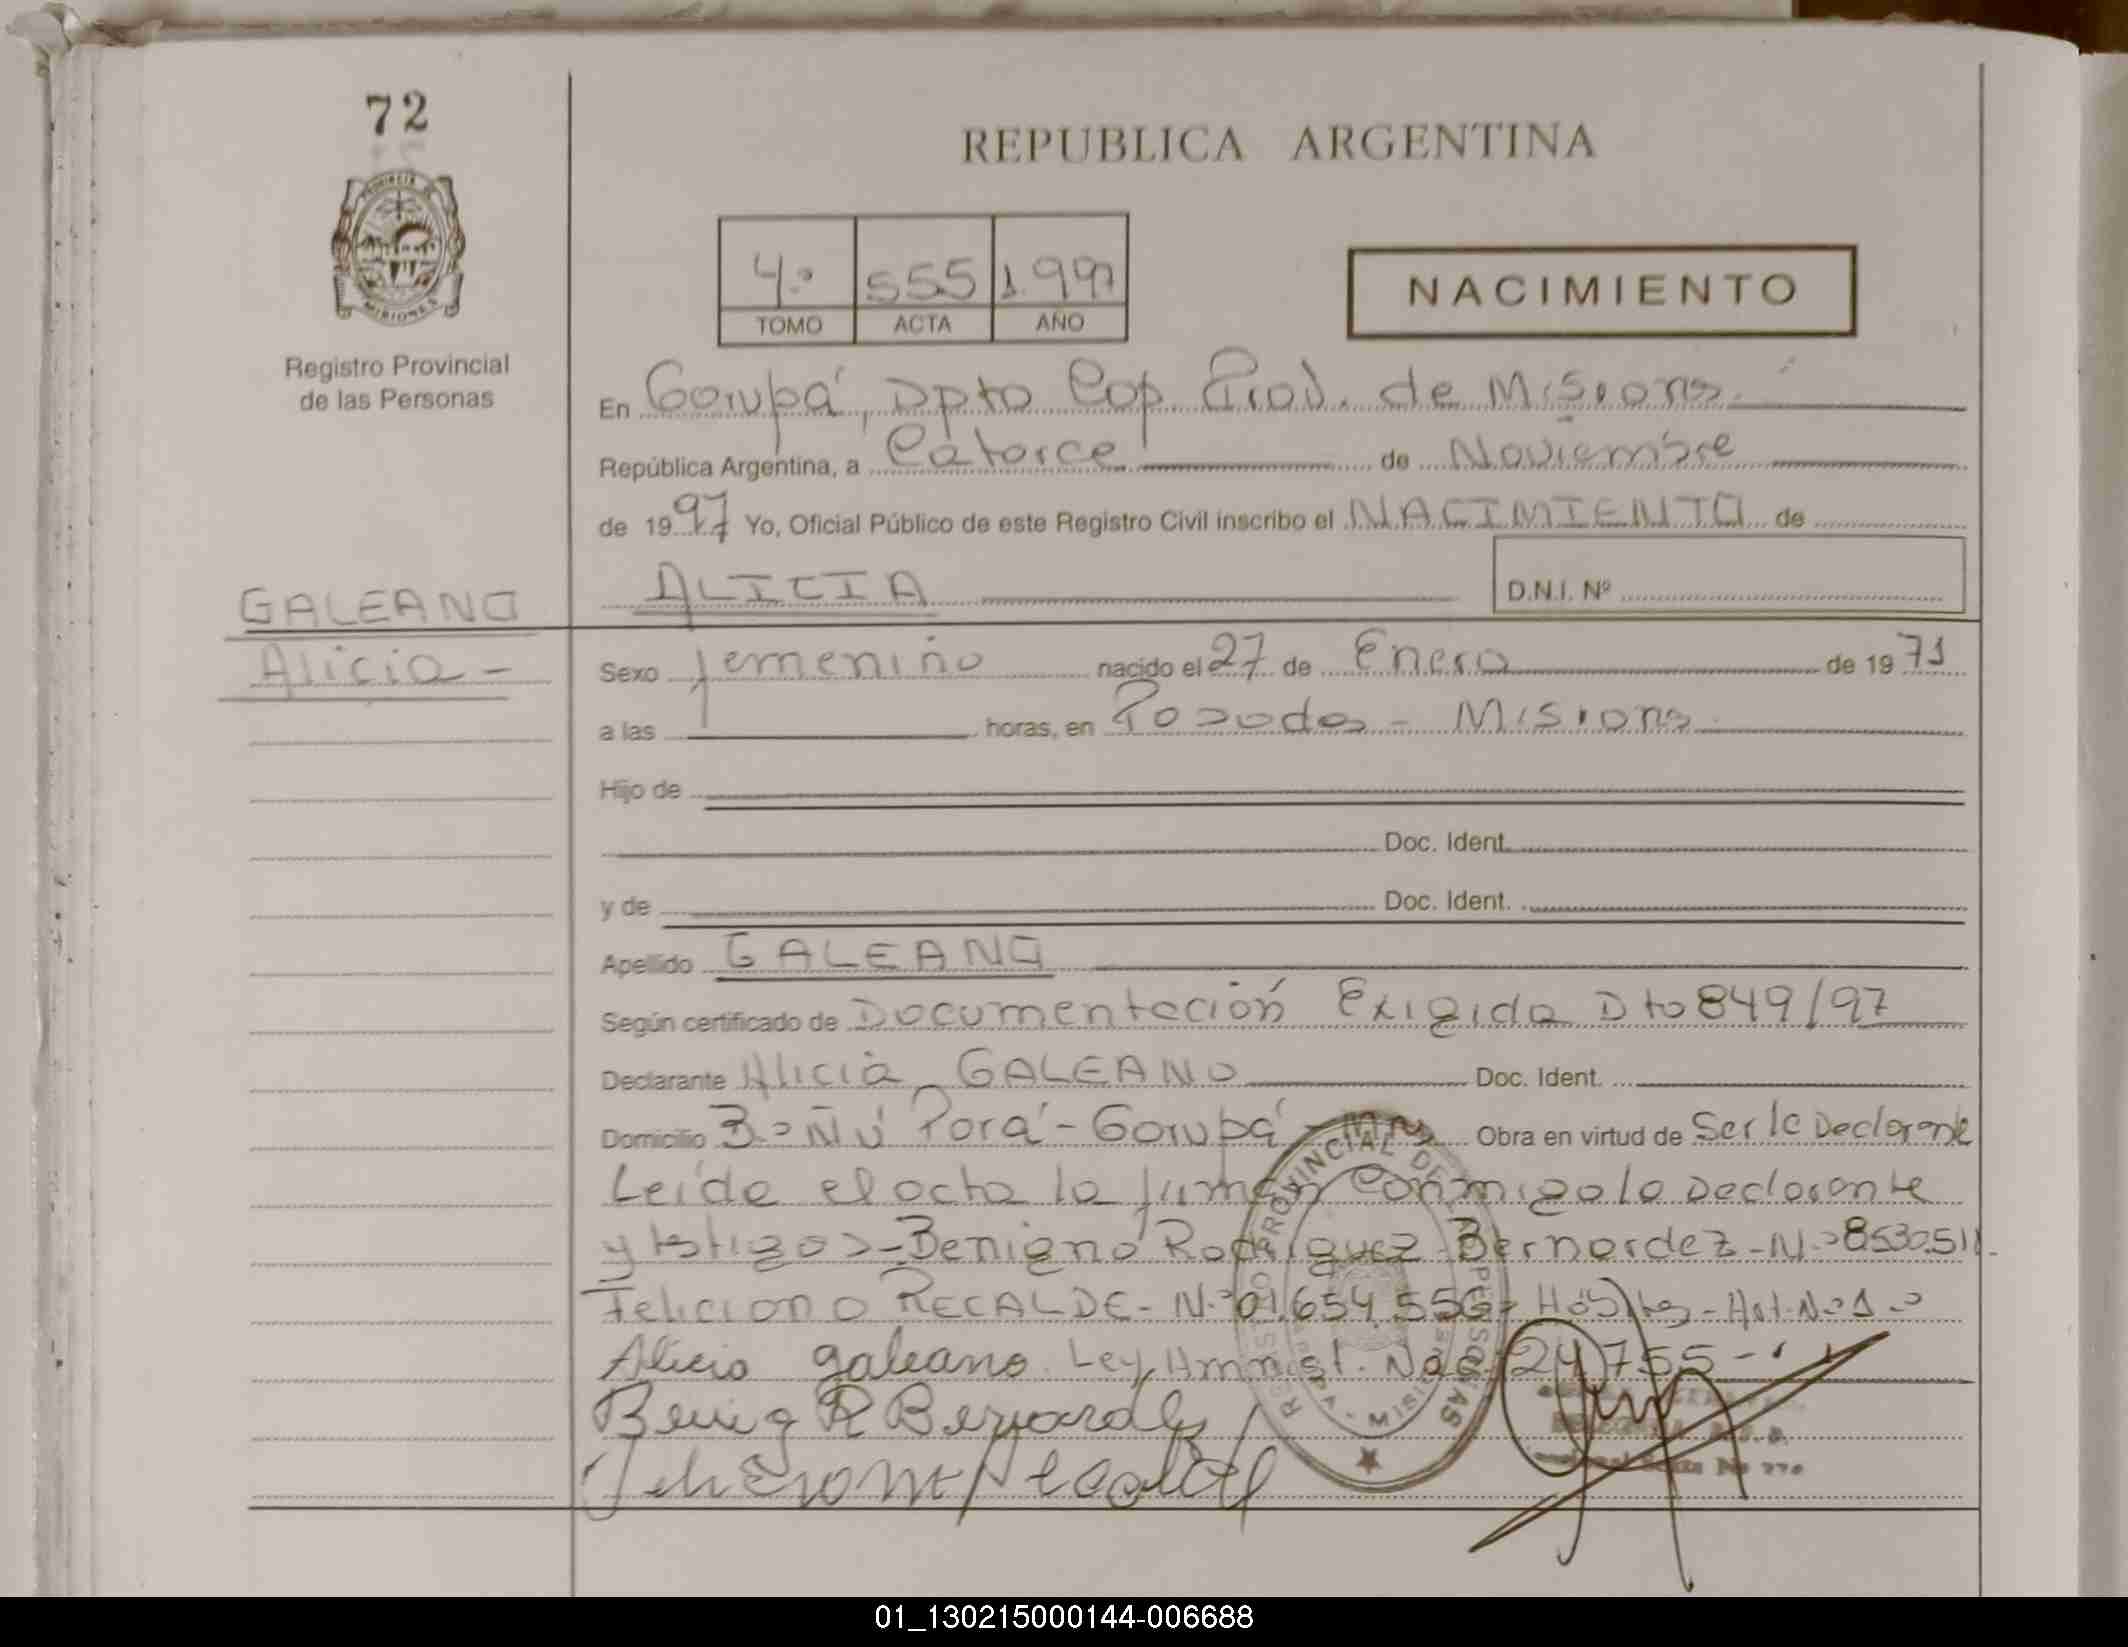 72
REPUBLICA ARGENTINA
PROVINCIA DE
MISIONES
4º 555 1.997
TOMO ACTA AÑO
NACIMIENTO
Registro Provincial
de las Personas
En Garupá, Dpto Cap. Prov. de Misiones.
República Argentina, a Catorce de Noviembre
de 1997 Yo, Oficial Público de este Registro Civil inscribo el NACIMIENTO de
ALICIA D.N.I. Nº
GALEANO
Alicia -
Sexo femenino nacido el 27 de Enero de 1971
a las horas, en Posadas - Misiones
Hijo de
Doc. Ident.
y de Doc. Ident.
Apellido GALEANO
Según certificado de Documentación Exigida Dto 849/97
Declarante Alicia GALEANO Doc. Ident.
Domicilio Bº Ñú Porá - Garupá - Mns Obra en virtud de Ser la Declarante
Leída el acta la firman conmigo la Declarante
y testigos - Benigno Rodriguez Bernardez - N.º 8530.511.
Feliciano RECALDE - N.º 01.654.556 - Hábiles - Art. Nº 1.º
Alicia galeano. Ley Amnist. Nac. 24755 -
Benig R Bernardez
REGISTRO PROVINCIAL DE LAS PERSONAS
01_130215000144-006688